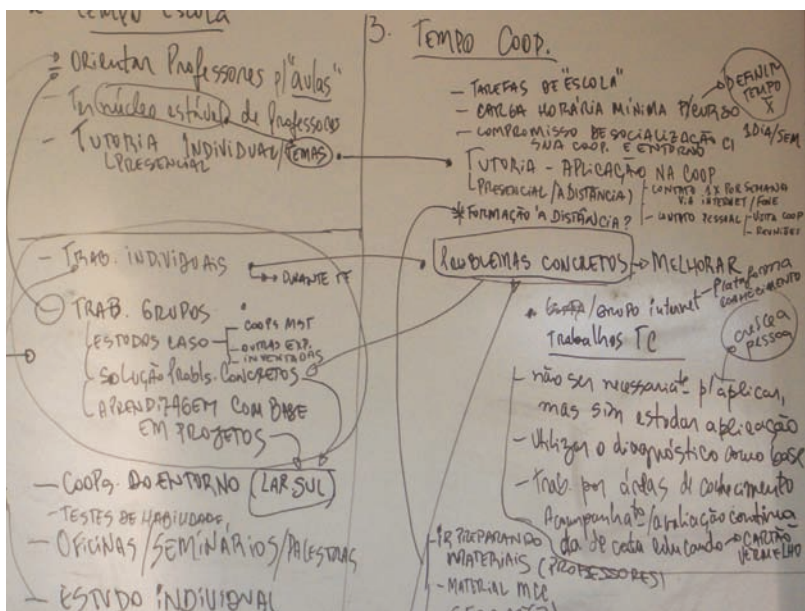 TEMPO ESCOLA
- ORIENTAR PROFESSORES P/ "AULAS"
- núcleo estável de Professores
- TUTORIA INDIVIDUAL/TEMAS
PRESENCIAL
- TRAB. INDIVIDUAIS
DURANTE TE
- TRAB. GRUPOS
ESTUDOS CASO
- COOPS MST
- OUTRAS EXP.
- INVENTADAS
SOLUÇÃO PROBLS. CONCRETOS
APRENDIZAGEM COM BASE
EM PROJETOS
- COOPS. DO ENTORNO (LAR SUL)
- TESTES DE HABILIDADE
- OFICINAS/SEMINÁRIOS/PALESTRAS
- ESTUDO INDIVIDUAL
3. TEMPO COOP.
- TAREFAS DE "ESCOLA"
- CARGA HORÁRIA MÍNIMA P/CURSO
DEFINIR
TEMPO
X
1DIA/SEM
- COMPROMISSO DE SOCIALIZAÇÃO C/
NA COOP. E ENTORNO
TUTORIA - APLICAÇÃO NA COOP
(PRESENCIAL/A DISTÂNCIA)
- CONTATO 1X POR SEMANA
VIA INTERNET/FONE
- CONTATO PESSOAL
- VISITA COOP
- REUNIÕES
* FORMAÇÃO À DISTÂNCIA?
PROBLEMAS CONCRETOS → MELHORAR
/GRUPO internet - Plataforma
CONHECIMENTO
Trabalhos TC
cresce a
pessoa
- não ser necessariate p/aplicar,
mas sim estudar aplicação
- Utilizar o diagnóstico como base
- Trab. por áreas de conhecimento
Acompanhato/avaliação contínua
da de cada educando → CARTÃO
VERMELHO
- IR PREPARANDO
MATERIAIS (PROFESSORES)
- MATERIAL MCC